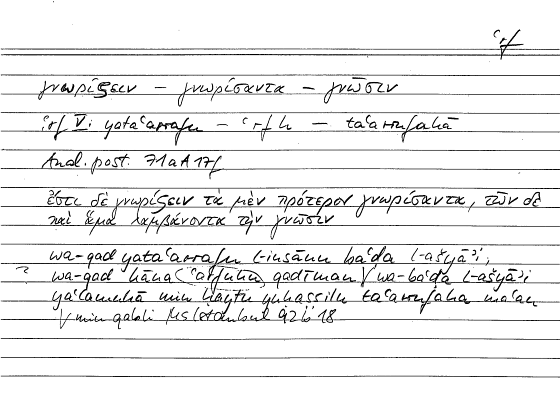 ʿrf
γνωρίζειν – γνωρίσαντα – γνῶσιν
ʿrf V: yataʿarrafu – ʿrf h – taʿarrufahā
Anal. post. 71a A 17f
ἔστι δὲ γνωρίζειν τὰ μὲν πρότερον γνωρίσαντα, τῶν δὲ
καὶ ἅμα λαμβάνοντα τὴν γνῶσιν
wa-qad yataʿarrafu l-insānu baʿda l-ašyāʾi,
? wa-qad kāna (ʿarfuhu) qadīman / wa-baʿda l-ašyāʾi
yaʿlamuhā min ḥaytu yuḥaṣṣilu taʿarrufahā maʿan
/ min qabli Ms Istanbul